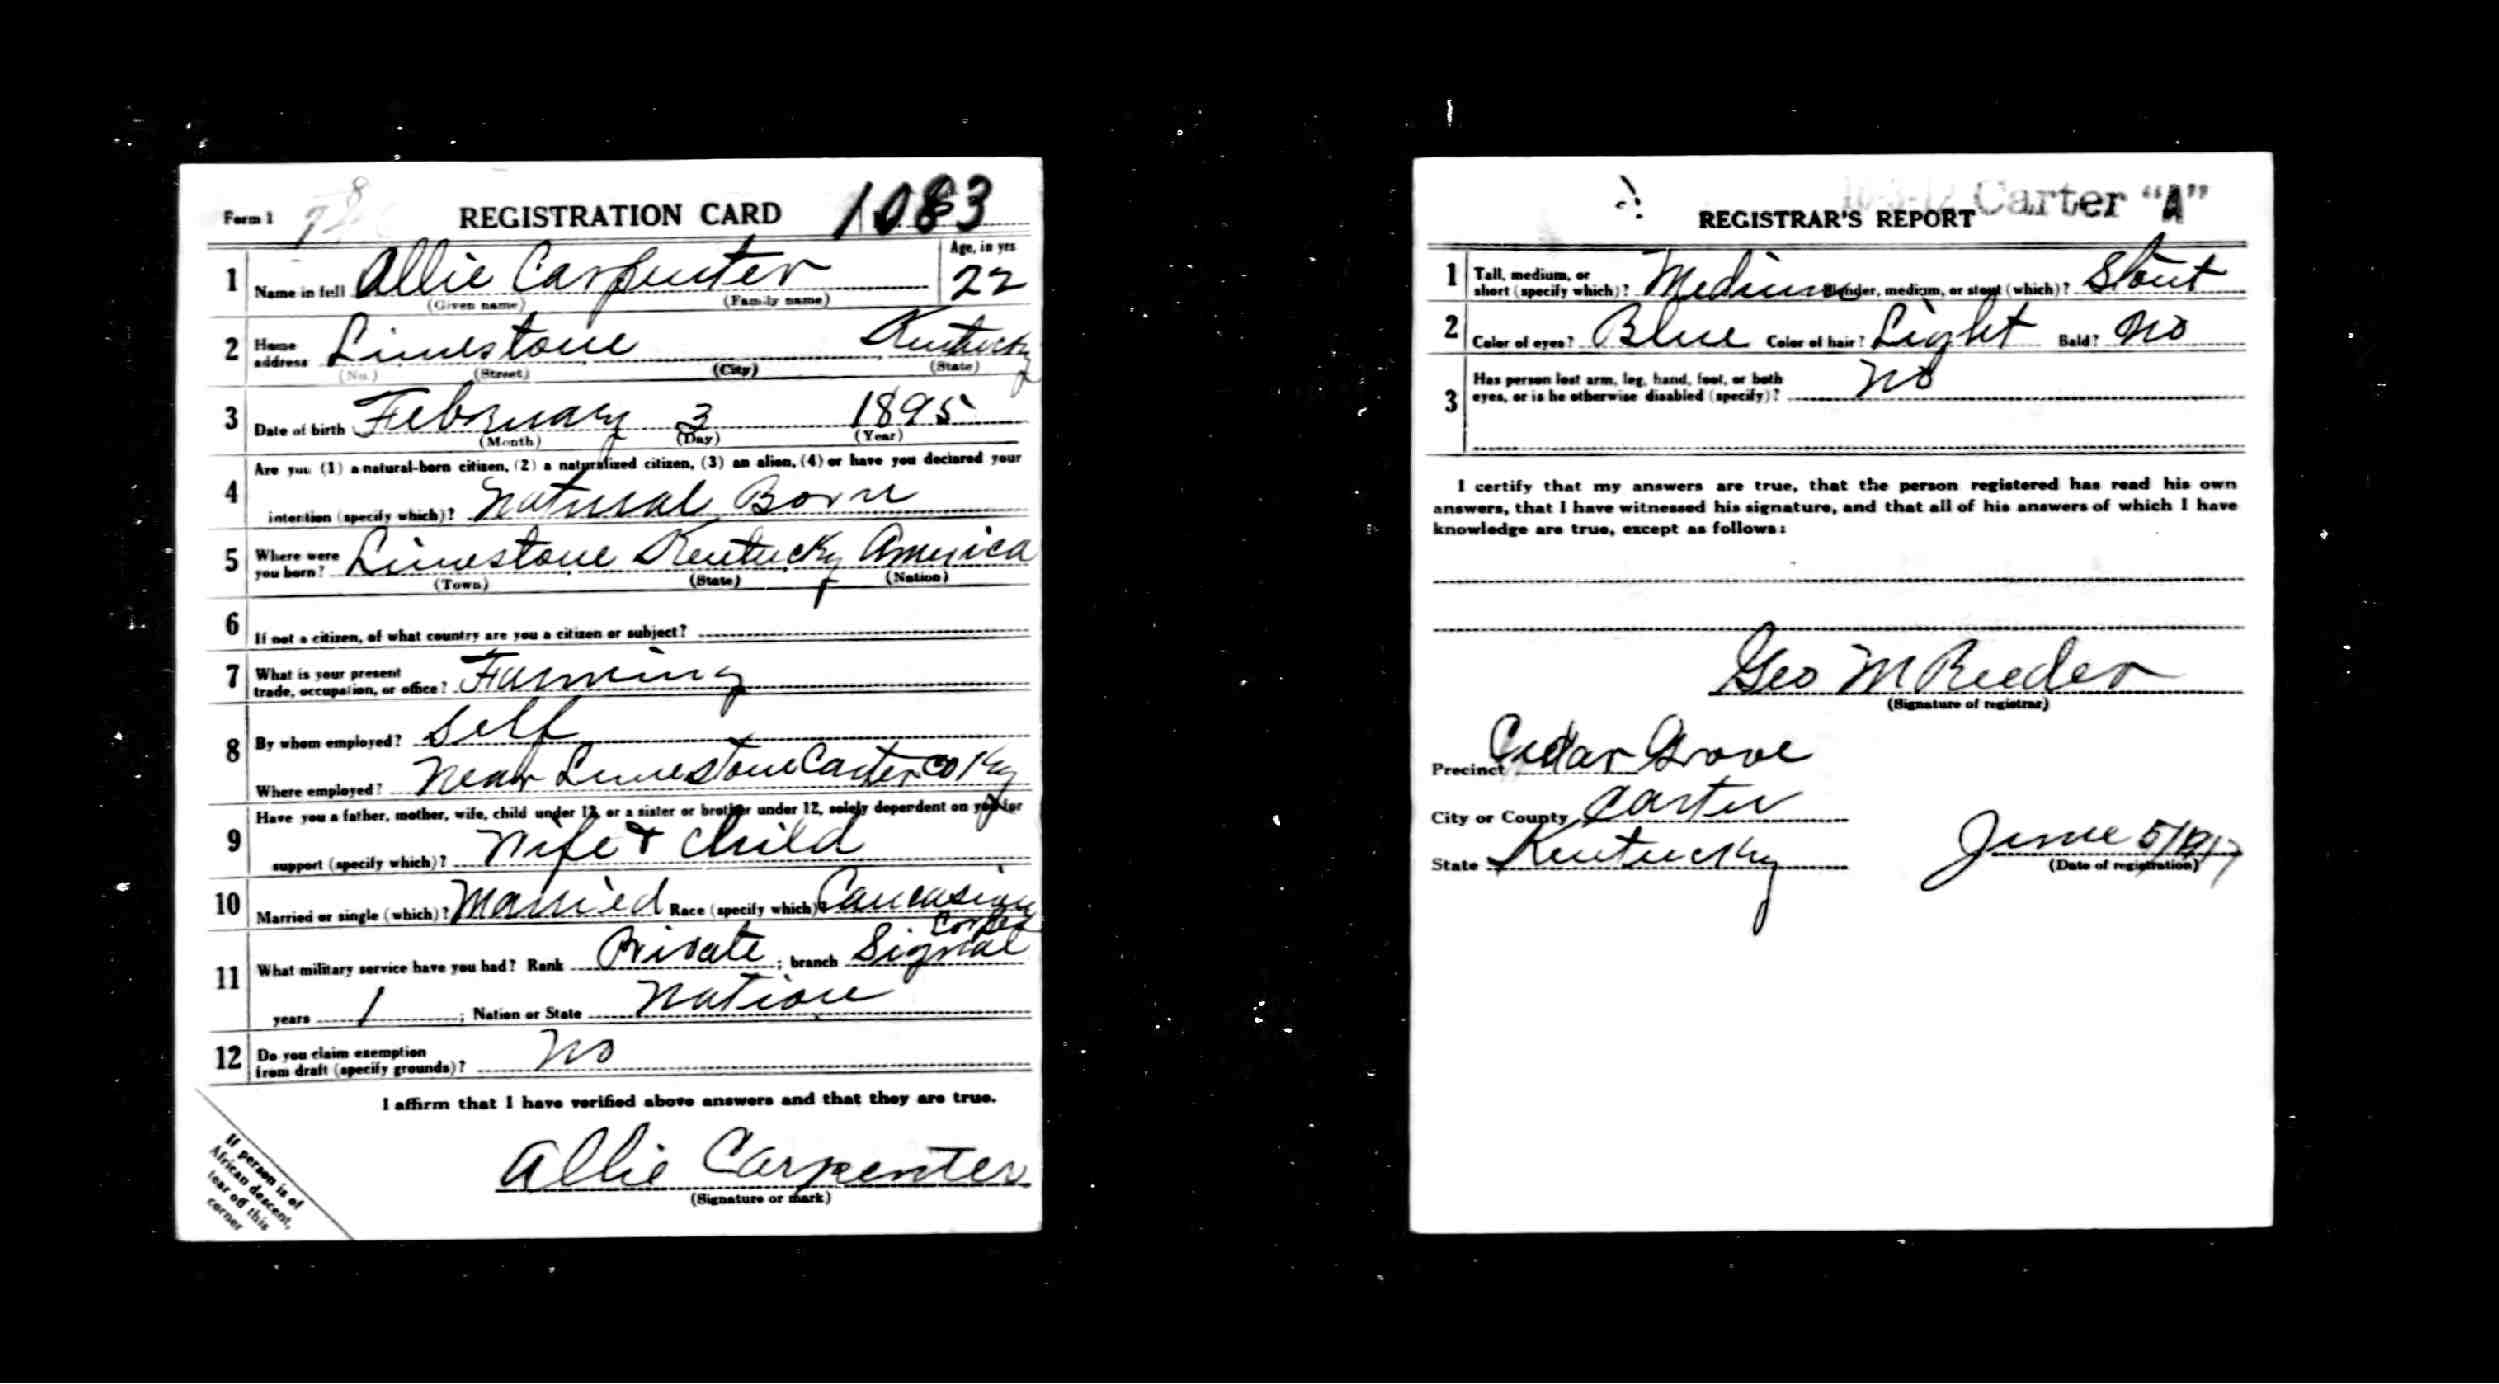 Form 1 REGISTRATION CARD 1083
1 Name in full Allie Carpenter Age, in yrs 22
(Given name) (Family name)
2 Home address Limestone Kentucky
(No.) (Street) (City) (State)
3 Date of birth February 3 1895
(Month) (Day) (Year)
4 Are you (1) a natural-born citizen, (2) a naturalized citizen, (3) an alien, (4) or have you declared your
intention (specify which)? Natural Born
5 Where were you born? Limestone Kentucky America
(Town) (State) (Nation)
6 If not a citizen, of what country are you a citizen or subject?
7 What is your present
trade, occupation, or office? Farming
8 By whom employed? Self
Where employed? Near Limestone Carter Co Ky
9 Have you a father, mother, wife, child under 12, or a sister or brother under 12, solely dependent on you for
support (specify which)? Wife & child
10 Married or single (which)? Married Race (specify which)? Caucasian
11 What military service have you had? Rank Private ; branch Signal
years 1 ; Nation or State Nation
12 Do you claim exemption
from draft (specify grounds)? No
I affirm that I have verified above answers and that they are true.
Allie Carpenter
(Signature or mark)
If person is of
African descent,
tear off this
corner
Carter "A"
REGISTRAR'S REPORT
1 Tall, medium, or
short (specify which)? Medium Slender, medium, or stout (which)? Stout
2 Color of eyes? Blue Color of hair? Light Bald? No
3 Has person lost arm, leg, hand, foot, or both
eyes, or is he otherwise disabled (specify)? No
I certify that my answers are true, that the person registered has read his own
answers, that I have witnessed his signature, and that all of his answers of which I have
knowledge are true, except as follows:
Geo M Reeder
(Signature of registrar)
Precinct Cedar Grove
City or County Carter
State Kentucky June 5/1917
(Date of registration)